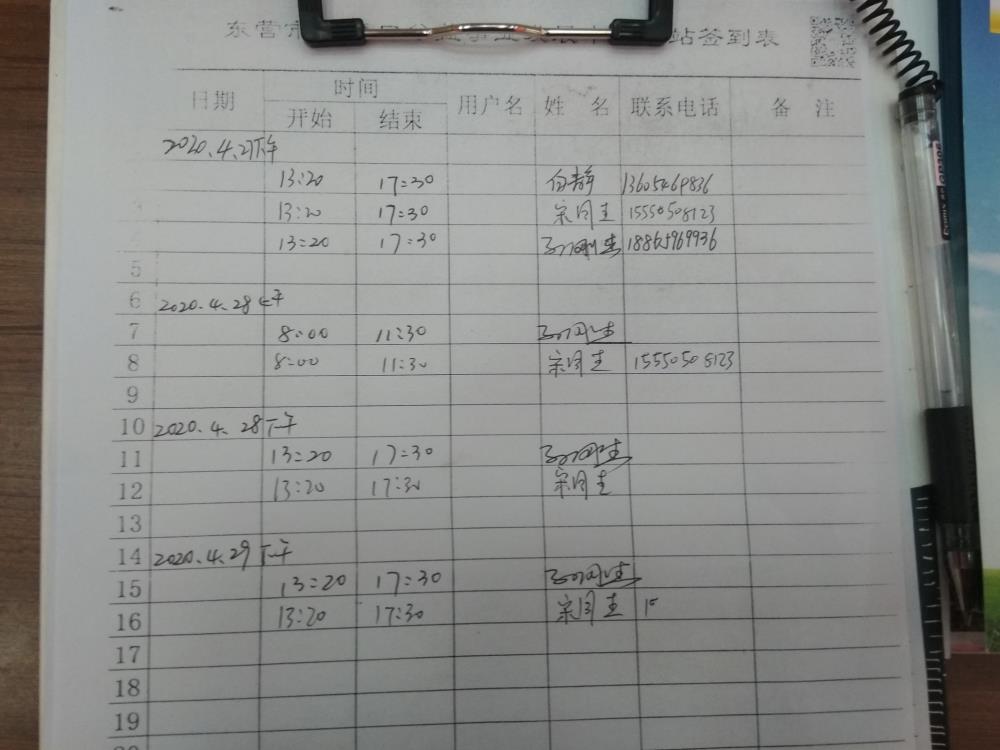 东营市
站签到表
日期 时间 用户名 姓 名 联系电话 备 注
开始 结束
2020.4.27下午
13:20 17:30 白静 13605469836
13:20 17:30 宋同圭 15550508123
13:20 17:30 18865969936
5
6 2020.4.28上午
7 8:00 11:30
8 8:00 11:30 宋同圭 15550508123
9
10 2020.4.28下午
11 13:20 17:30
12 13:20 17:30 宋同圭
13
14 2020.4.29下午
15 13:20 17:30
16 13:20 17:30 宋同圭 15
17
18
19